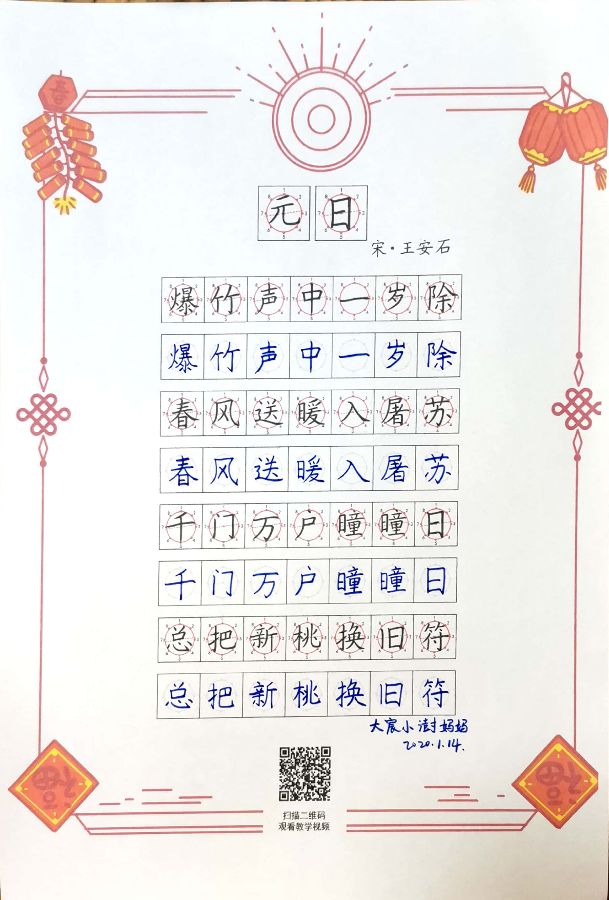 元日
宋·王安石
爆竹声中一岁除
爆竹声中一岁除
春风送暖入屠苏
春风送暖入屠苏
千门万户瞳瞳日
千门万户瞳瞳日
总把新桃换旧符
总把新桃换旧符
大宸小澍妈妈
2020.1.14.
扫描二维码
观看教学视频